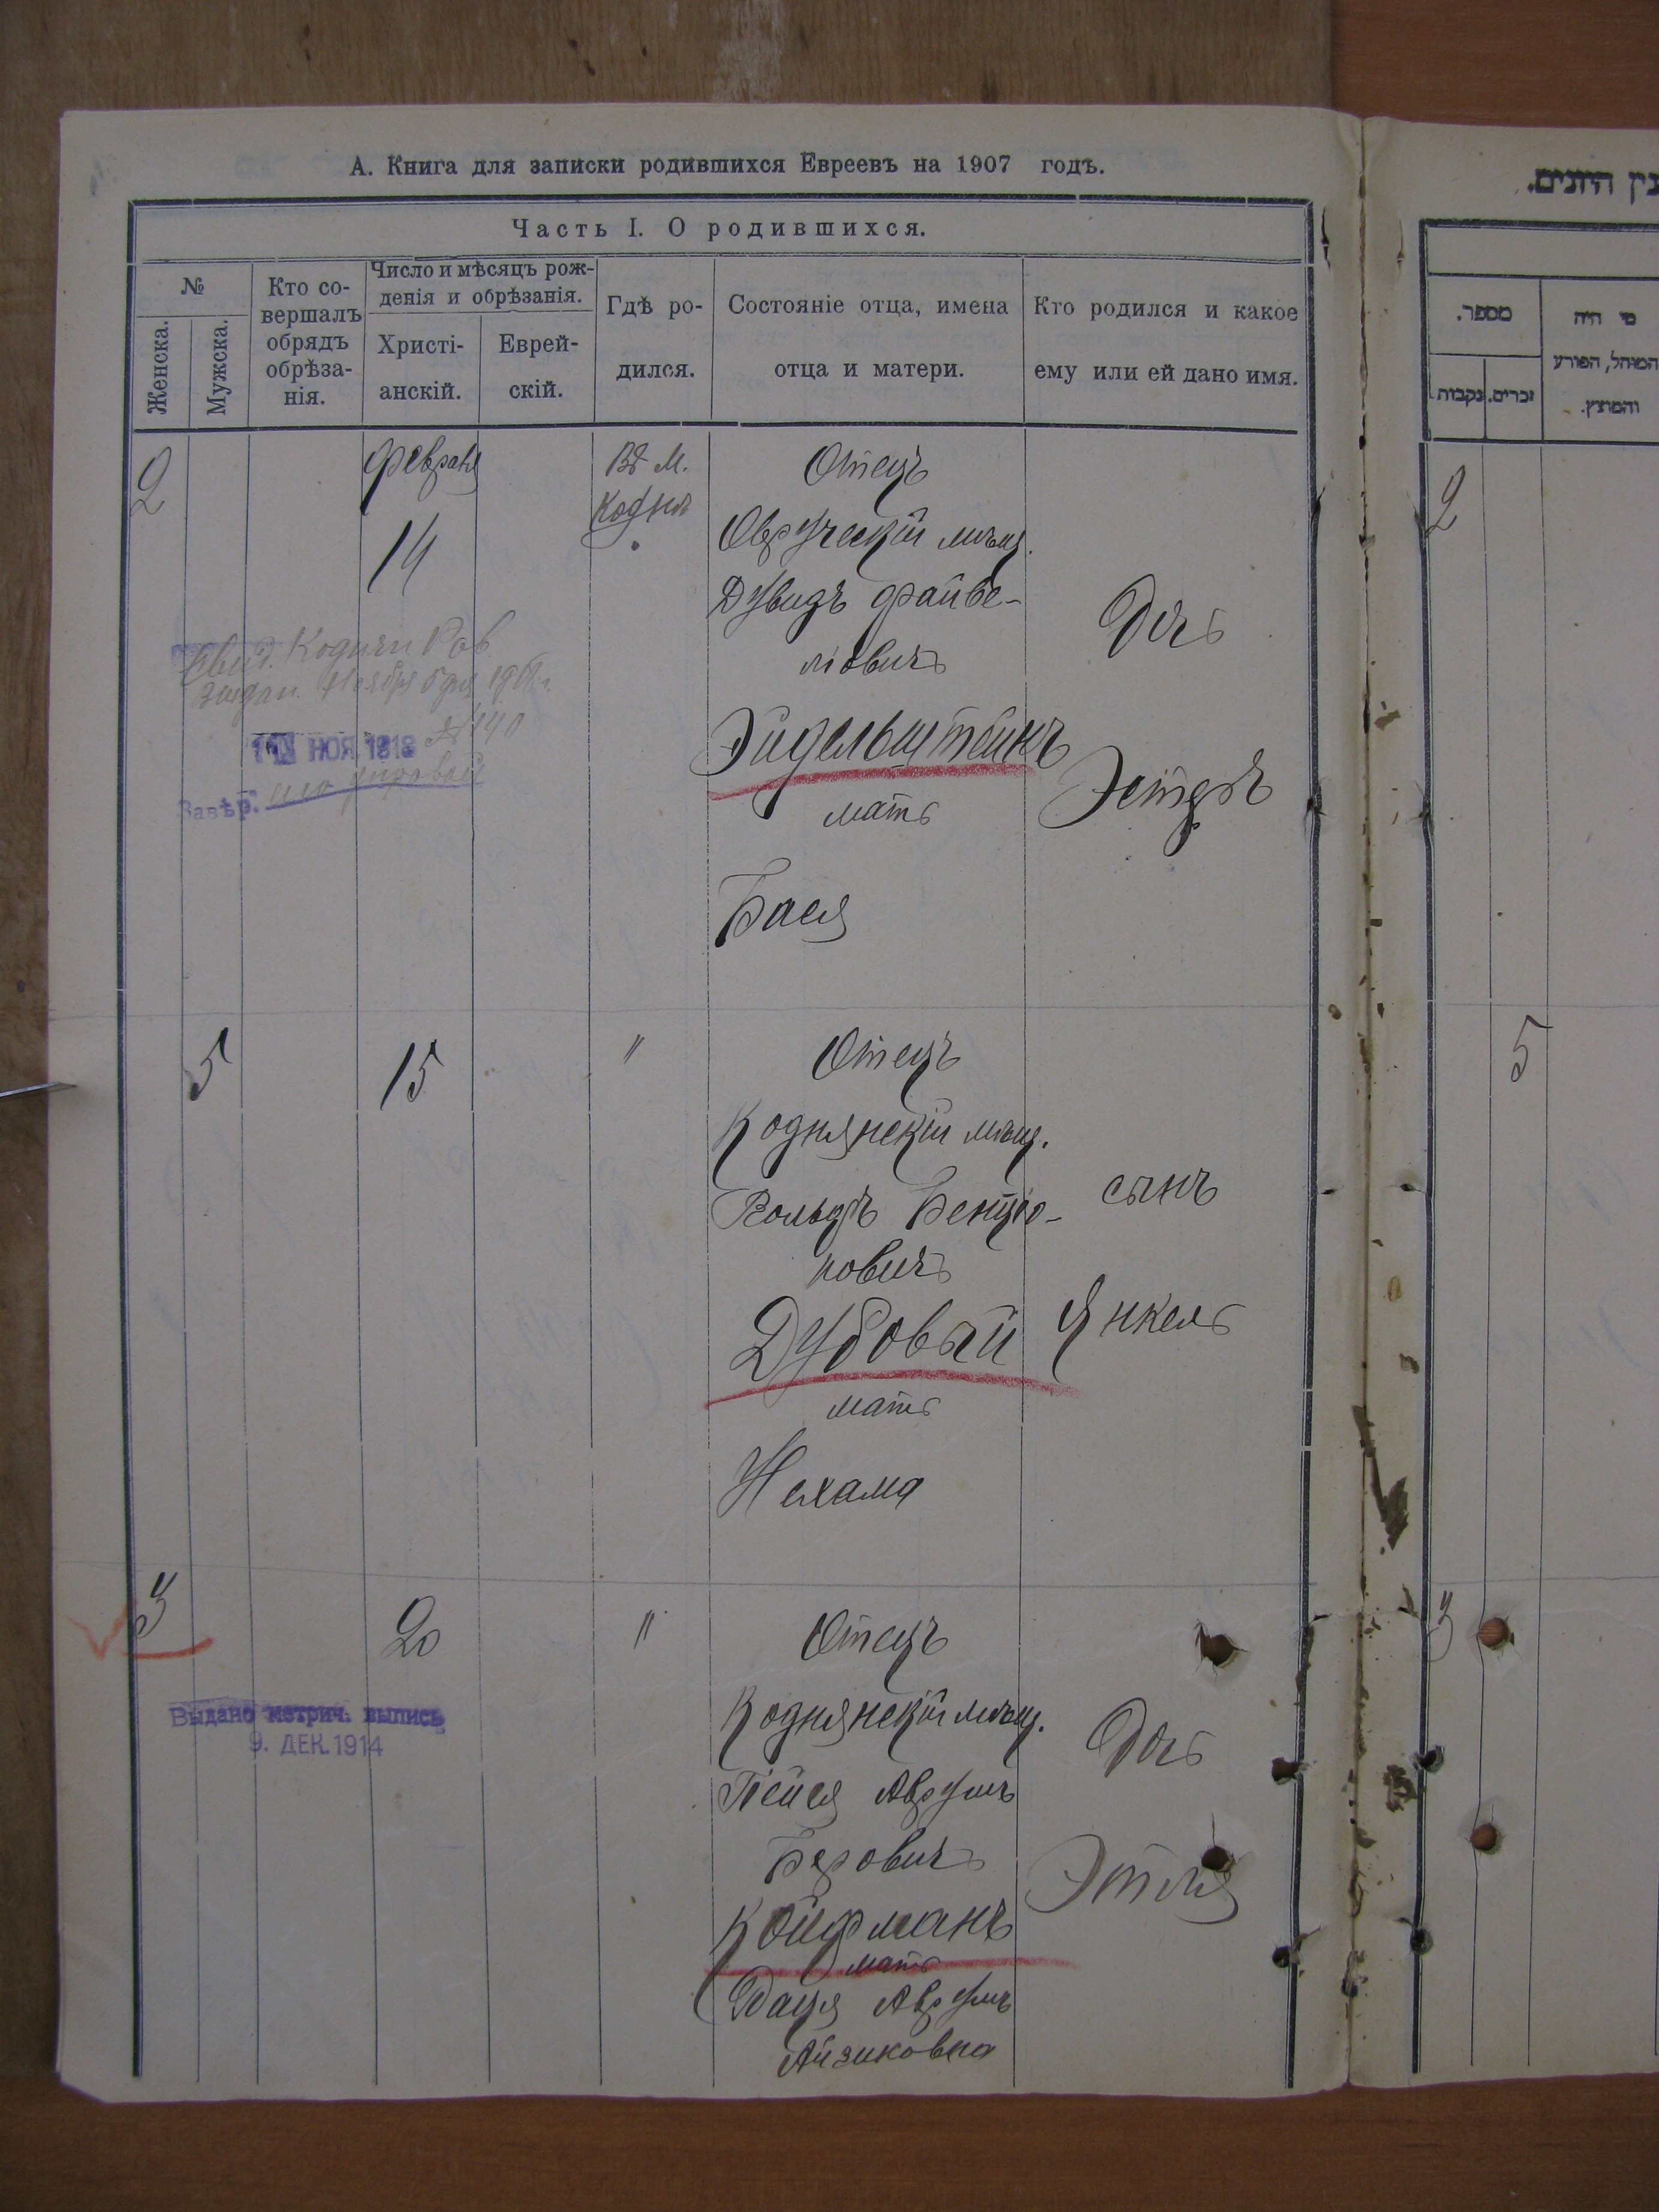 А. Книга для записки родившихся Евреевъ на 1907 годъ.
Часть I. О родившихся.
№
Женска.
Мужска.
Кто со-
вершалъ
обрядъ
обрѣза-
нія.
Число и мѣсяцъ рож-
денія и обрѣзанія.
Христі-
анскій.
Еврей-
скій.
Гдѣ ро-
дился.
Состояніе отца, имена
отца и матери.
Кто родился и какое
ему или ей дано имя.
2
Февраля
14
Въ М.
Кодня
Отецъ
Овручскій мѣщ.
Дувидъ Файве-
лювичъ
Эйдельштейнъ
мать
Бася
Дочь
Эстеръ
НОЯ 1918
Завѣр.
5
15
"
Отецъ
Коднянскій мѣщ.
Вольфъ Бенціо-
новичъ
Дубовый
мать
Нехама
сынъ
Янкель
3
20
"
Отецъ
Коднянскій мѣщ.
Пейся Аврумъ
Беровичъ
Койфманъ
мать
Аврумъ
Айзиковна
Дочь
Этля
Выдано метрич. выпись
9. ДЕК. 1914
מספר.
נקבות
זכרים.
מי היה
המוהל, הפורע
והמוצץ.
2
5
3